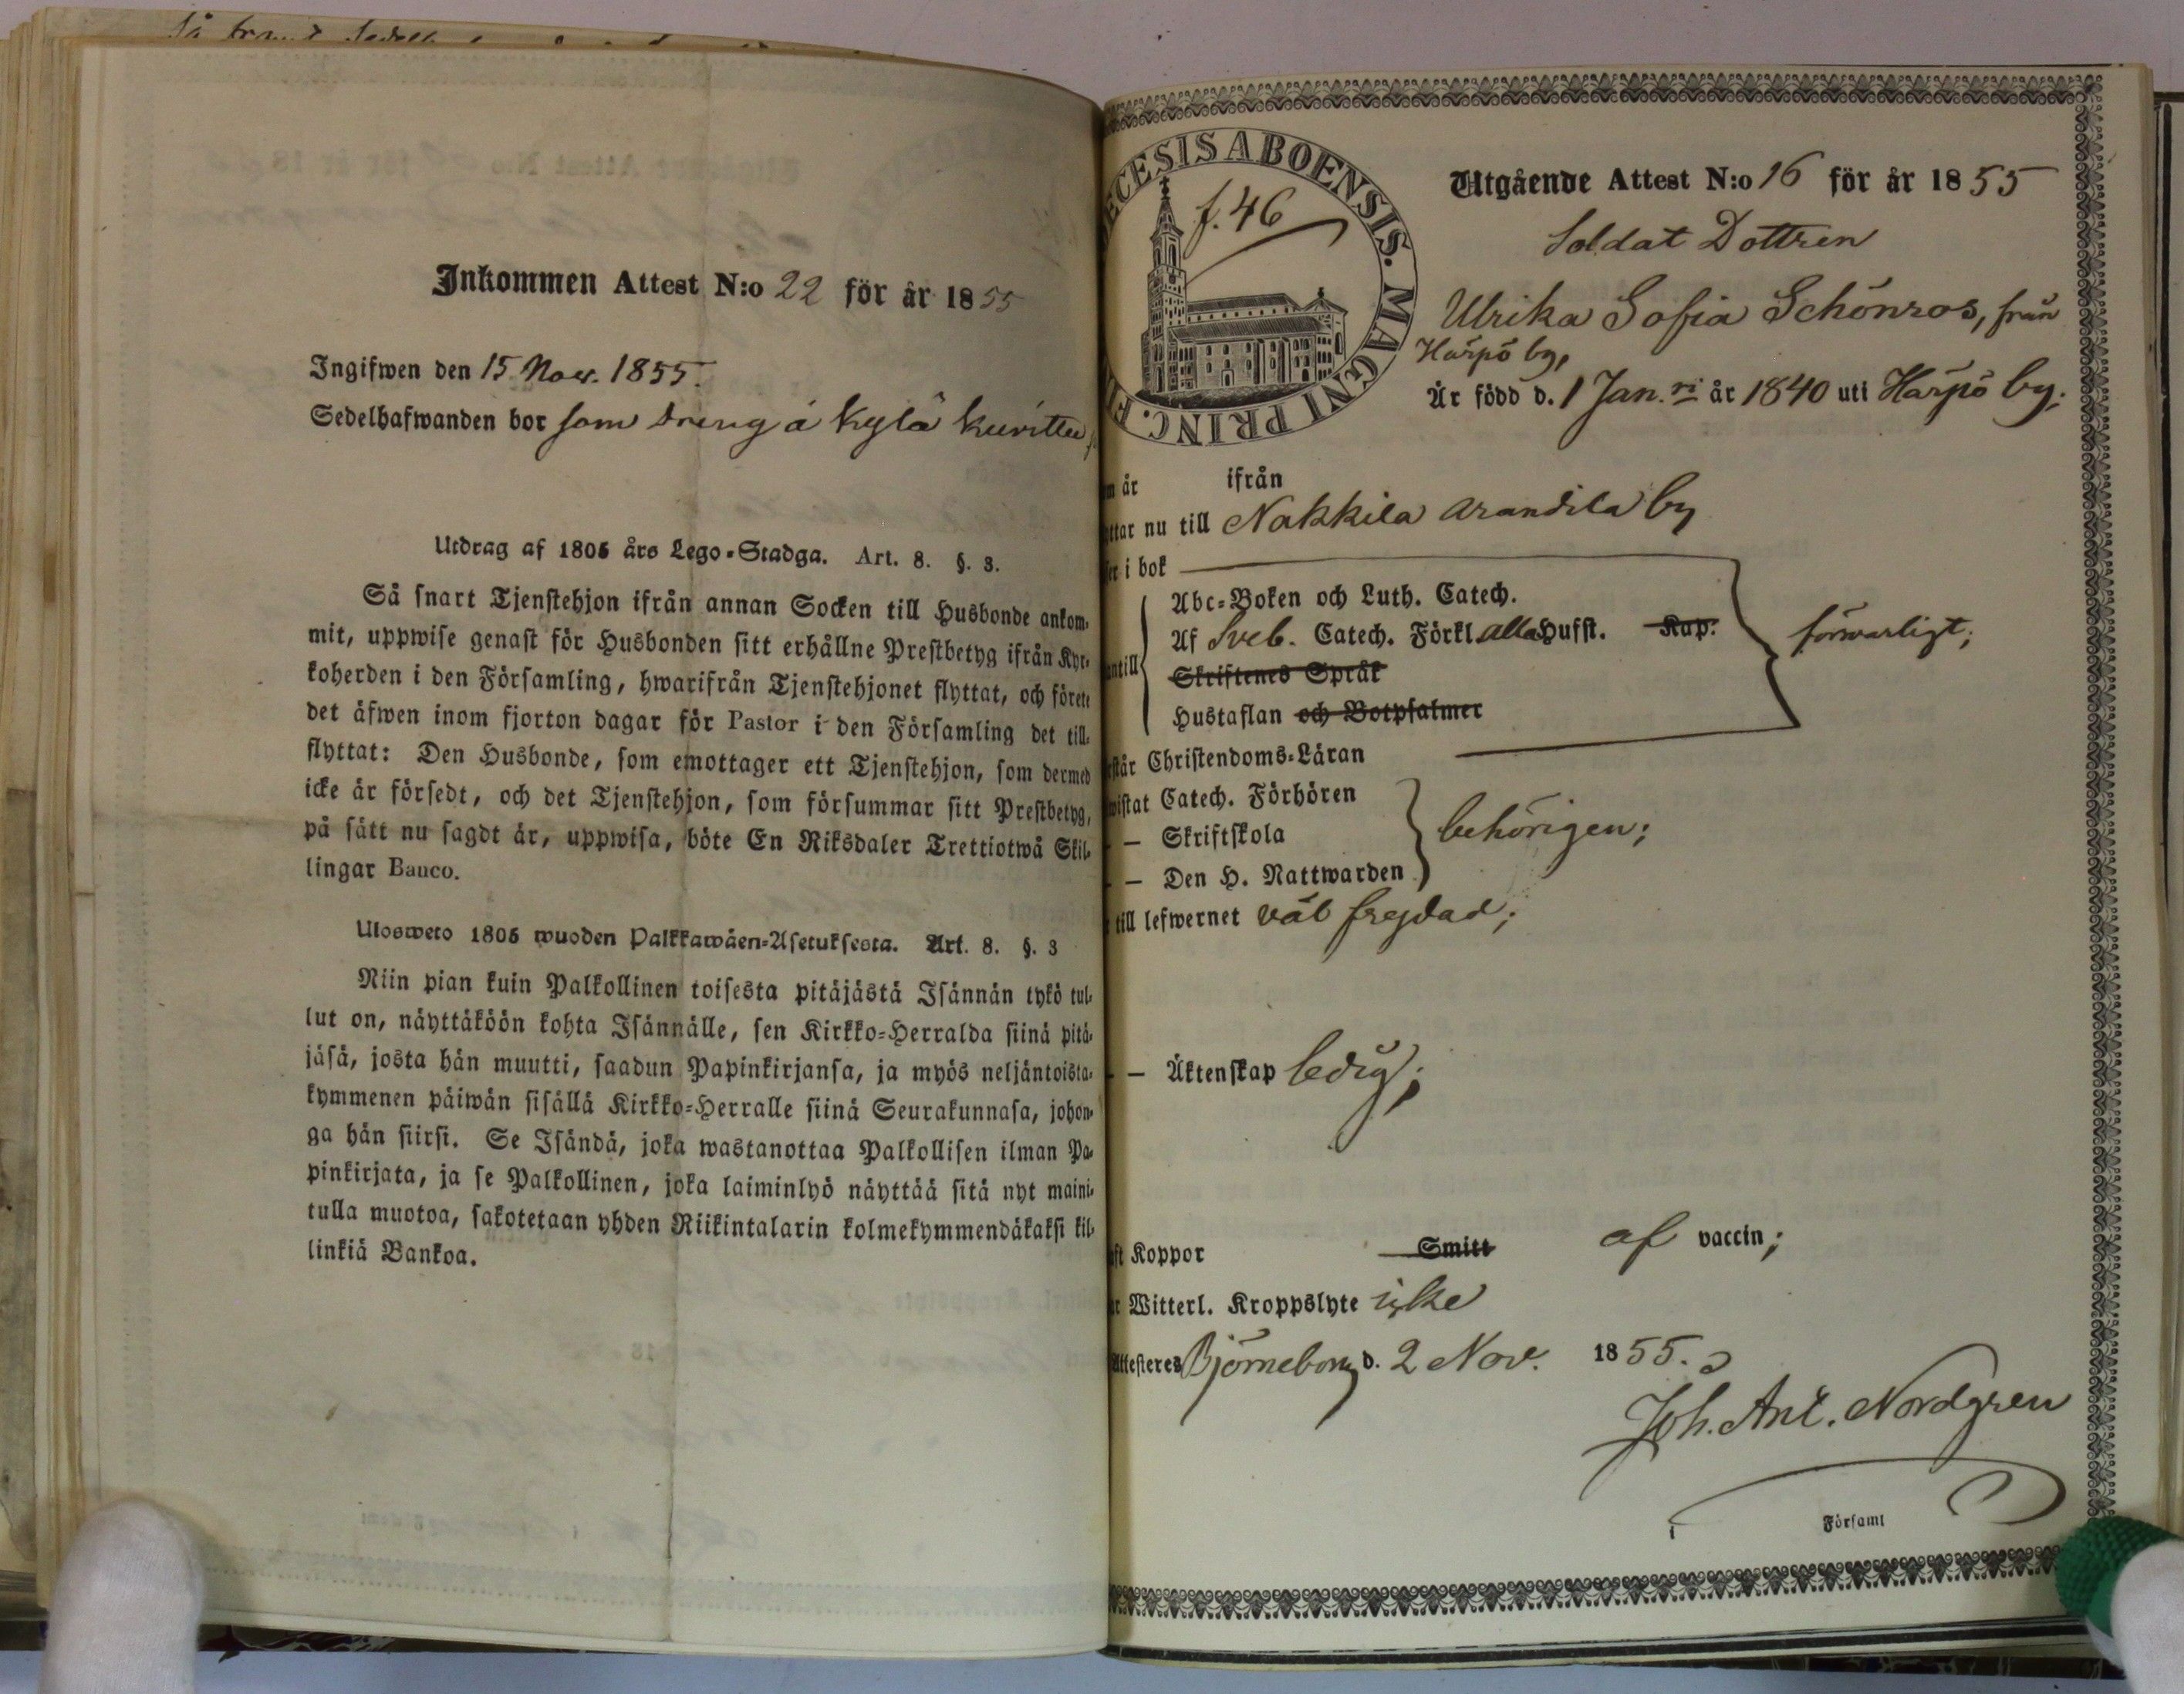 Inkommen Attest N:o 22 för år 1855
Ingifwen den 15 Nov. 1855.
Sedelhafwanden bor som dreng å Kylä kuvittu
Utdrag af 1805 års Lego-Stadga. Art. 8. §. 3.
Så snart Tjenstehjon ifrån annan Socken till Husbonde ankom-
mit, uppwise genast för Husbonden sitt erhållne Prestbetyg ifrån Kyr-
koherden i den Församling, hwarifrån Tjenstehjonet flyttat, och förete
det äfwen inom fjorton dagar för Pastor i den Församling det till-
flyttat: Den Husbonde, som emottager ett Tjenstehjon, som dermed
icke är försedt, och det Tjenstehjon, som försummar sitt Prestbetyg,
på sätt nu sagdt är, uppwisa, böte En Riksdaler Trettiotwå Skil-
lingar Banco.
Ulosweto 1805 wuoden Palkkawäen-Asetuksesta. Art. 8. §. 3
Niin pian kuin Palkollinen toisesta pitäjästä Isännän tykö tul-
lut on, näyttäköön kohta Isännälle, sen Kirkko-Herralda siinä pitä-
jäsä, josta hän muutti, saadun Papinkirjansa, ja myös neljäntoista-
kymmenen päiwän sisällä Kirkko-Herralle siinä Seurakunnasa, johon-
ga hän siirsi. Se Isändä, joka wastanottaa Palkollisen ilman Pa-
pinkirjata, ja se Palkollinen, joka laiminlyö näyttää sitä nyt maini-
tulla muotoa, sakotetaan yhden Riikintalarin kolmekymmendäkaksi kil-
linkiä Bankoa.
ECESIS ABOENSIS. MAGNI PRINC. F
f. 46
Utgående Attest N:o 16 för år 1855
Soldat Dottren
Ulrika Sofia Schönros, från
Harpö by,
Är född d. 1 Jan.ri år 1840 uti Harpö by;
år ifrån
ttar nu till Nakkila Arandila by
i bok
Abc-Boken och Luth. Catech.
Af Sveb. Catech. Förkl alla Hufst. Kap.
förswarligt;
antill
Skriftenes Språk
Hustaflan och Botpsalmer
står Christendoms-Läran
wistat Catech. Förhören
— Skriftskola
behörigen;
— Den H. Nattwarden
till lefwernet väl frejdad;
— Äktenskap ledig;
Koppor Smitt af vaccin;
Witterl. Kroppslyte icke
Attesteres Björneborg d. 2 Nov. 1855.
Joh. Ant. Nordgren
i Församl